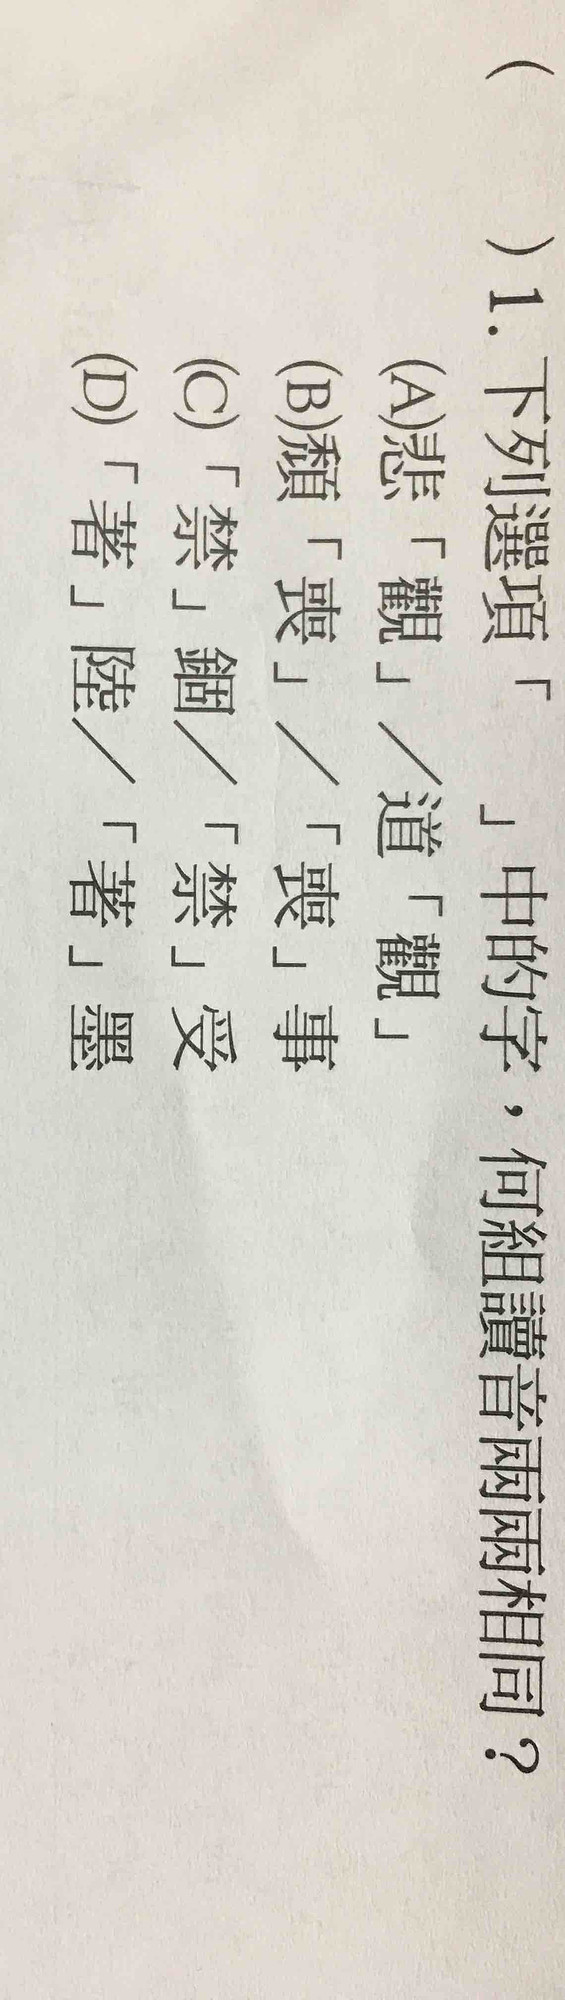 (　　)1.下列選項「　」中的字，何組讀音兩兩相同？
(A)悲「觀」／道「觀」
(B)頹「喪」／「喪」事
(C)「禁」錮／「禁」受
(D)「著」陸／「著」墨